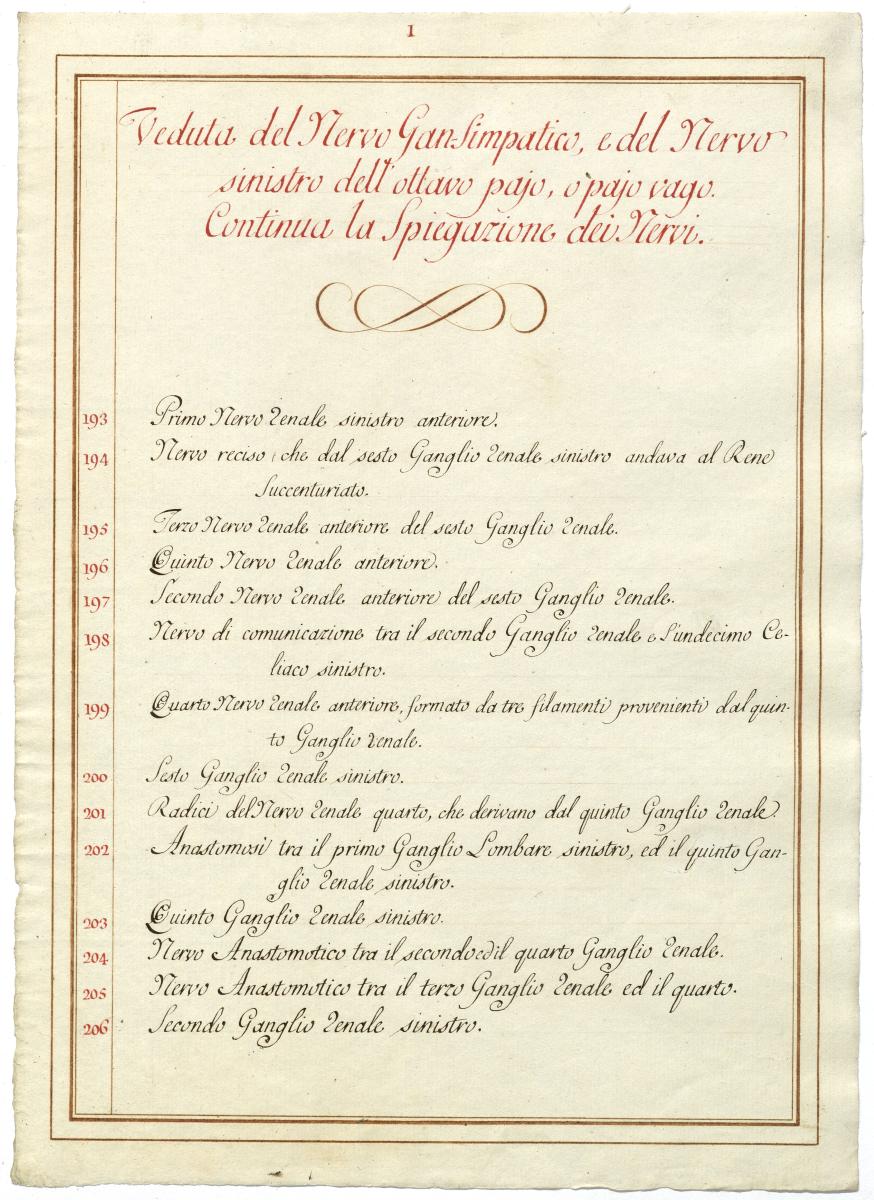 1
Veduta del Nervo Gan-Simpatico, e del Nervo
sinistro dell'ottavo pajo, o pajo vago.
Continua la Spiegazione dei Nervi.
193 Primo Nervo Renale sinistro anteriore.
194 Nervo reciso che dal sesto Ganglio Renale sinistro andava al Rene
Succenturiato.
195 Terzo Nervo Renale anteriore del sesto Ganglio Renale.
196 Quinto Nervo Renale anteriore.
197 Secondo Nervo Renale anteriore del sesto Ganglio Renale.
198 Nervo di comunicazione tra il secondo Ganglio Renale e l'undecimo Ce-
liaco sinistro.
199 Quarto Nervo Renale anteriore, formato da tre filamenti provenienti dal quin-
to Ganglio renale.
200 Sesto Ganglio Renale sinistro.
201 Radici del Nervo Renale quarto, che derivano dal quinto Ganglio Renale.
202 Anastomosi tra il primo Ganglio Lombare sinistro, ed il quinto Gan-
glio Renale sinistro.
203 Quinto Ganglio Renale sinistro.
204 Nervo Anastomotico tra il secondo ed il quarto Ganglio Renale.
205 Nervo Anastomotico tra il terzo Ganglio Renale ed il quarto.
206 Secondo Ganglio Renale sinistro.